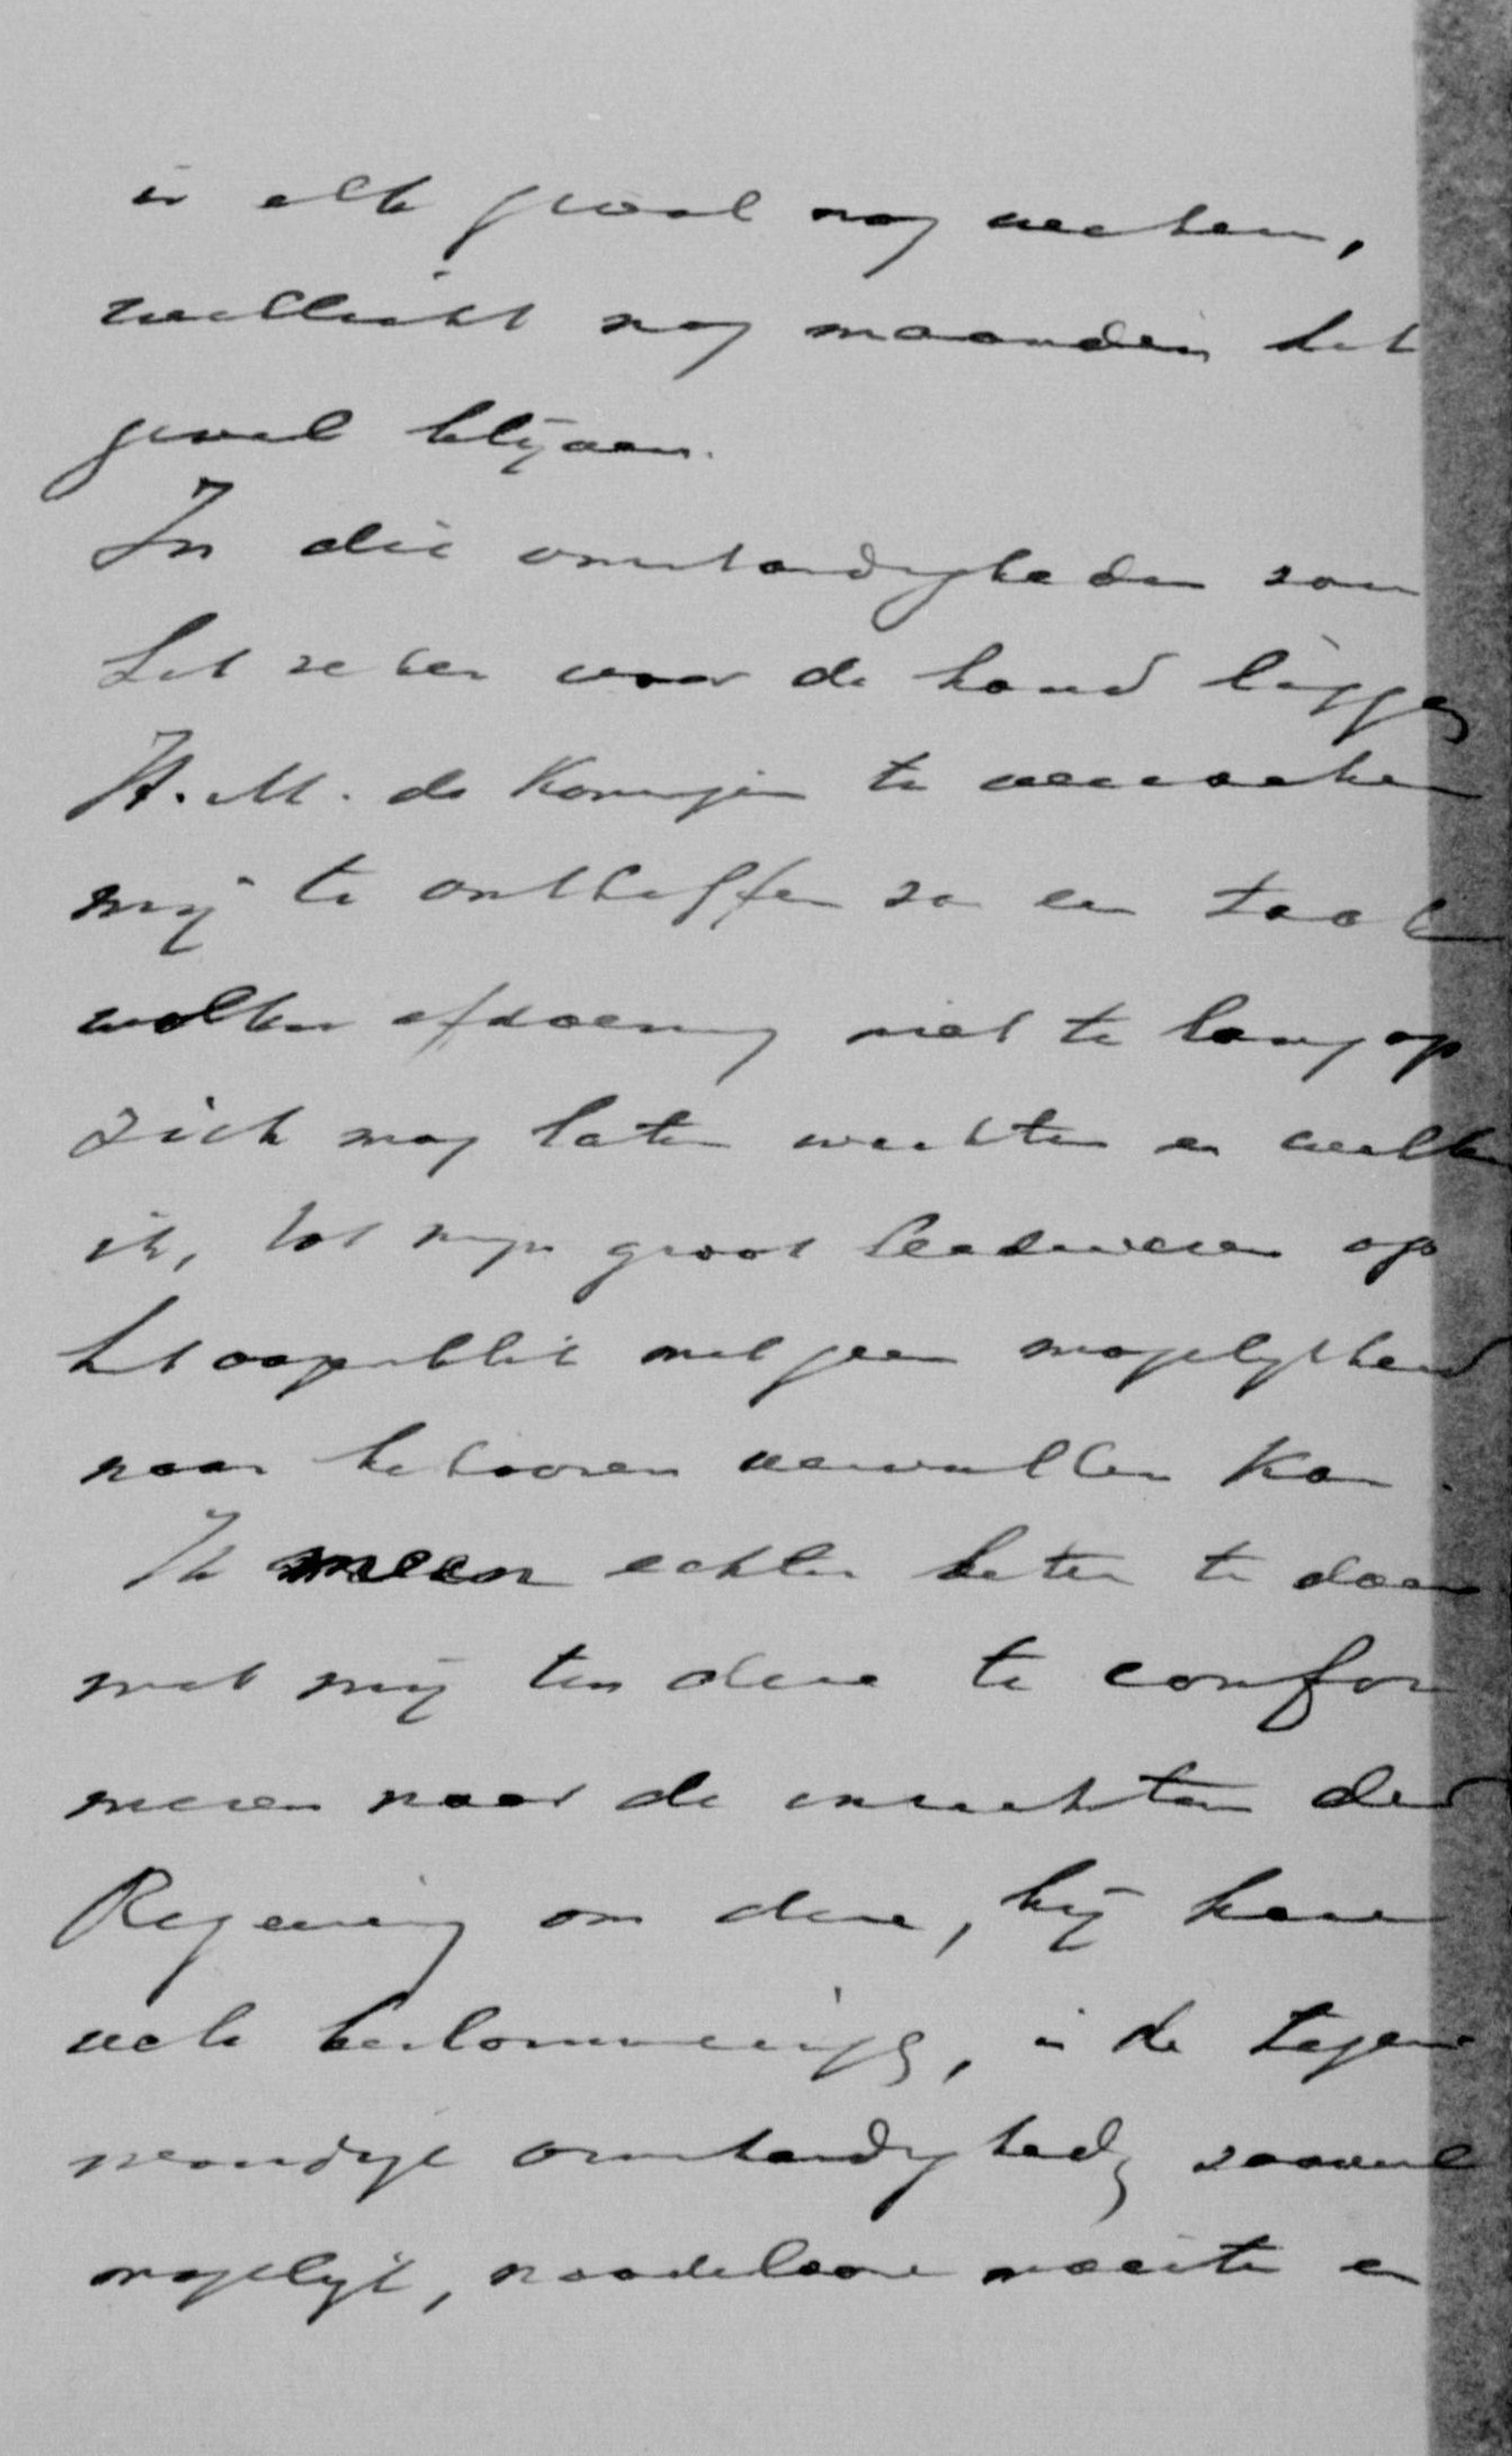 in elk geval nog weken,
wellicht nog maanden het
geval blijven.
In die omstandigheden zou
het zeker voor de hand liggen
H.M. de Koningin te verzoeken
mij te ontheffen van een taak
welker afdoening niet te lang op
zich mag laten wachten en welke
ik, tot mijn groot leedwezen op
het oogenblik met geen mogelijkheid
naar behooren vervullen kan.
Ik meen echter beter te doen
met mij ten deze te confor
meeren naar de inzichten der
Regeering om deze, bij hare
vele beslommeringen, in de tegen
woordige omstandigheden zooveel
mogelijk, noodelooze moeite en